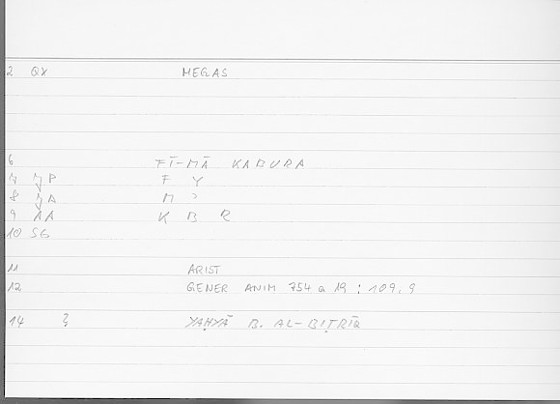 2 QX MEGAS
6 FĪ-MĀ KABURA
F Y
8 M ʾ
9 AA K B R
10 SG
11 ARIST
12 GENER ANIM 754 a 19 : 109.9
14 YAḤYĀ B. AL-BIṬRĪQ